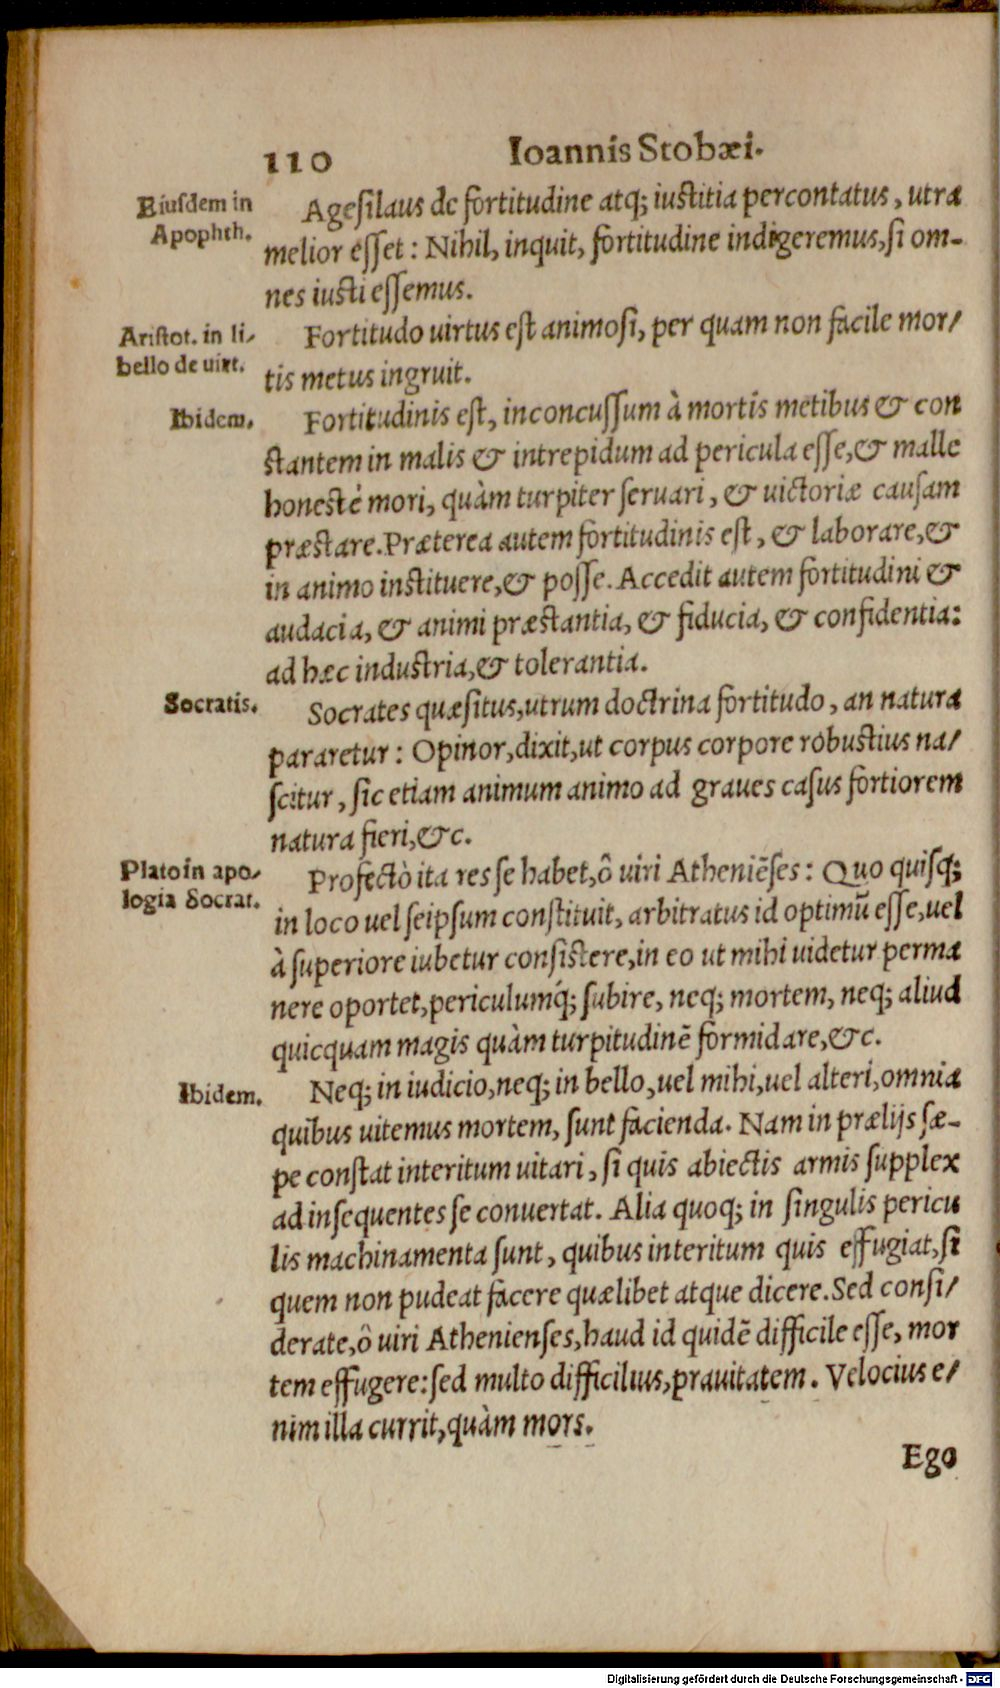 110 Ioannis Stobæi.
Eiusdem in
Apophth.
Agesilaus de fortitudine atq; iustitia percontatus, utra
melior esset: Nihil, inquit, fortitudine indigeremus, si om-
nes iusti essemus.
Aristot. in li-
bello de uirt.
Fortitudo uirtus est animosi, per quam non facile mor-
tis metus ingruit.
Ibidem.
Fortitudinis est, inconcussum à mortis metibus & con
stantem in malis & intrepidum ad pericula esse, & malle
honestè mori, quàm turpiter seruari, & uictoriæ causam
præstare. Præterea autem fortitudinis est, & laborare, &
in animo instituere, & posse. Accedit autem fortitudini &
audacia, & animi præstantia, & fiducia, & confidentia:
ad hæc industria, & tolerantia.
Socratis.
Socrates quæsitus, utrum doctrina fortitudo, an natura
pararetur: Opinor, dixit, ut corpus corpore robustius na-
scitur, sic etiam animum animo ad graues casus fortiorem
natura fieri, &c.
Plato in apo-
logia Socrat.
Profectò ita res se habet, ô uiri Atheniēses: Quo quisq;
in loco uel seipsum constituit, arbitratus id optimū esse, uel
à superiore iubetur consistere, in eo ut mihi uidetur perma
nere oportet, periculumq́; subire, neq; mortem, neq; aliud
quicquam magis quàm turpitudinē formidare, &c.
Ibidem.
Neq; in iudicio, neq; in bello, uel mihi, uel alteri, omnia
quibus uitemus mortem, sunt facienda. Nam in prælijs sæ-
pe constat interitum uitari, si quis abiectis armis supplex
ad insequentes se conuertat. Alia quoq; in singulis pericu
lis machinamenta sunt, quibus interitum quis effugiat, si
quem non pudeat facere quælibet atque dicere. Sed consi-
derate, ô uiri Athenienses, haud id quidē difficile esse, mor
tem effugere: sed multo difficilius, prauitatem. Velocius e-
nim illa currit, quàm mors.
Ego
Digitalisierung gefördert durch die Deutsche Forschungsgemeinschaft - DFG